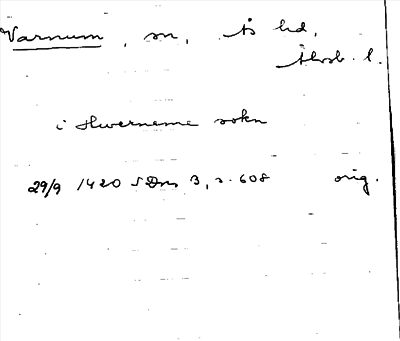 Varnum, sn, Ås hd,
Älvsb. l.
i Hwerneme sokn
29/9 1420 SDns 3, s. 608 orig.